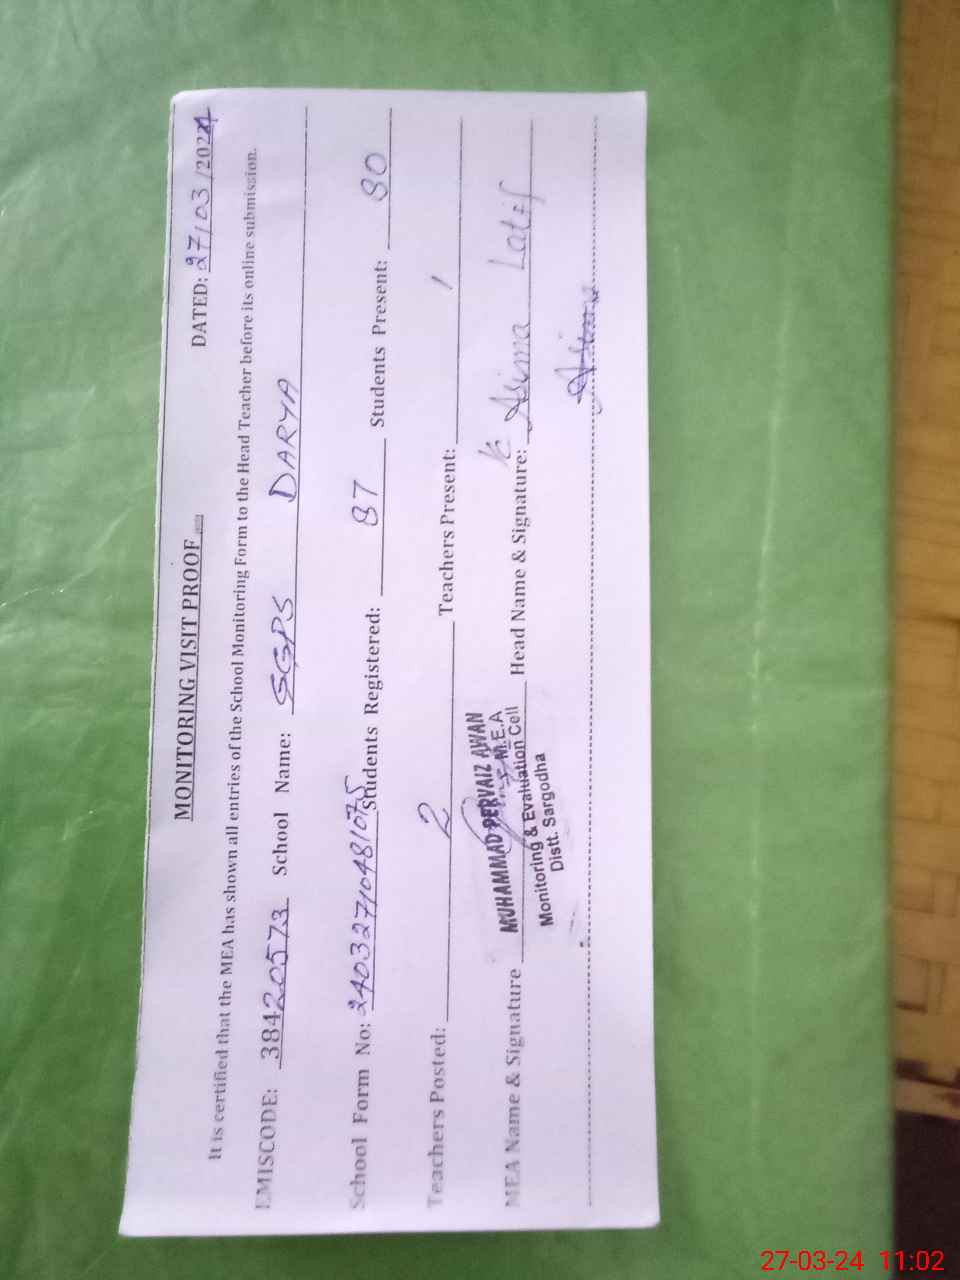 MONITORING VISIT PROOF
DATED: 27/03/2024
It is certified that the MEA has shown all entries of the School Monitoring Form to the Head Teacher before its online submission.
EMISCODE: 38420573 School Name: SGPS DARYA
School Form No: 24032710481075 Students Registered: 87 Students Present: 80
Teachers Posted: 2 Teachers Present: 1
MEA Name & Signature Head Name & Signature: Asima Latif
MUHAMMAD PERVAIZ AWAN
M.E.A
Monitoring & Evaluation Cell
Distt. Sargodha
Asima
27-03-24 11:02